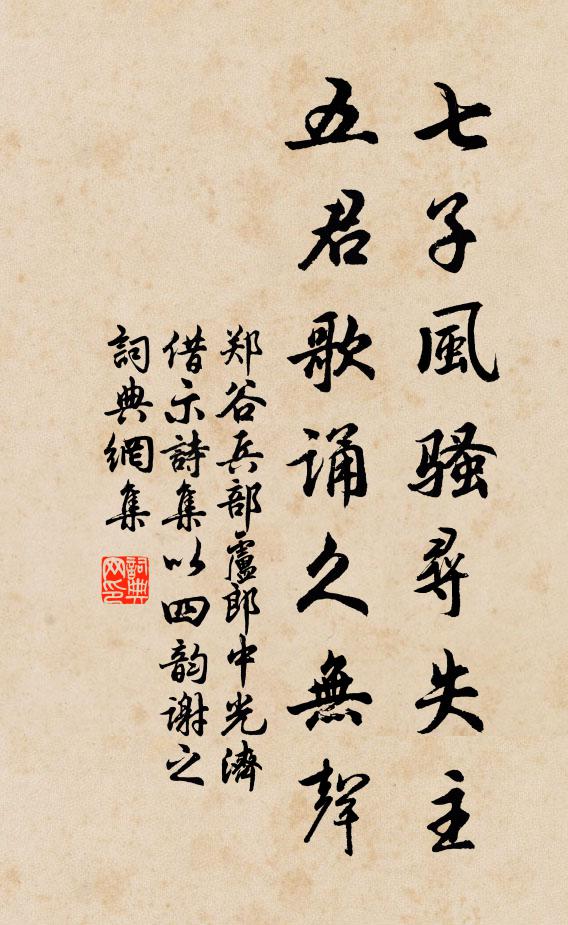 七子風騷尋失主
五君歌诵久無聲
郑谷兵部盧郎中光濟
借示詩集以四韵谢之
詞典網集
詞典网印